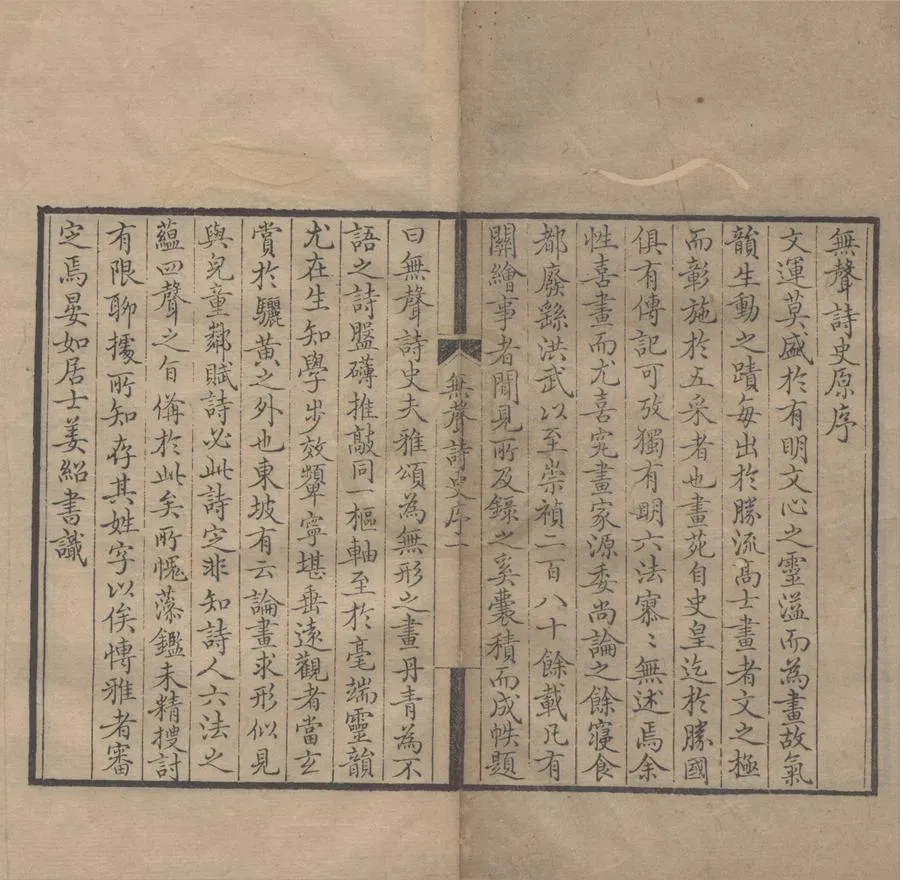 無聲詩史原序
文運莫盛於有明文心之靈溢而為畫故氣
韻生動之蹟每出於勝流高士畫者文之極
而彰施於五采者也畫苑自史皇迄於勝國
俱有傳記可攷獨有明六法寥〻無述焉余
性喜畫而尤喜究畫家源委尚論之餘寢食
都廢繇洪武以至崇禎二百八十餘載凡有
關繪事者聞見所及錄之奚囊積而成帙題
無聲詩史序一
曰無聲詩史夫雅頌為無形之畫丹青為不
語之詩盤礴推敲同一樞軸至於毫端靈韻
尤在生知學步效顰寧堪垂遠觀者當玄
賞於驪黃之外也東坡有云論畫求形似見
與兒童鄰賦詩必此詩定非知詩人六法之
蘊四聲之旨備於此矣所愧藻鑑未精搜討
有限聊據所知存其姓字以俟博雅者審
定焉晏如居士姜紹書識